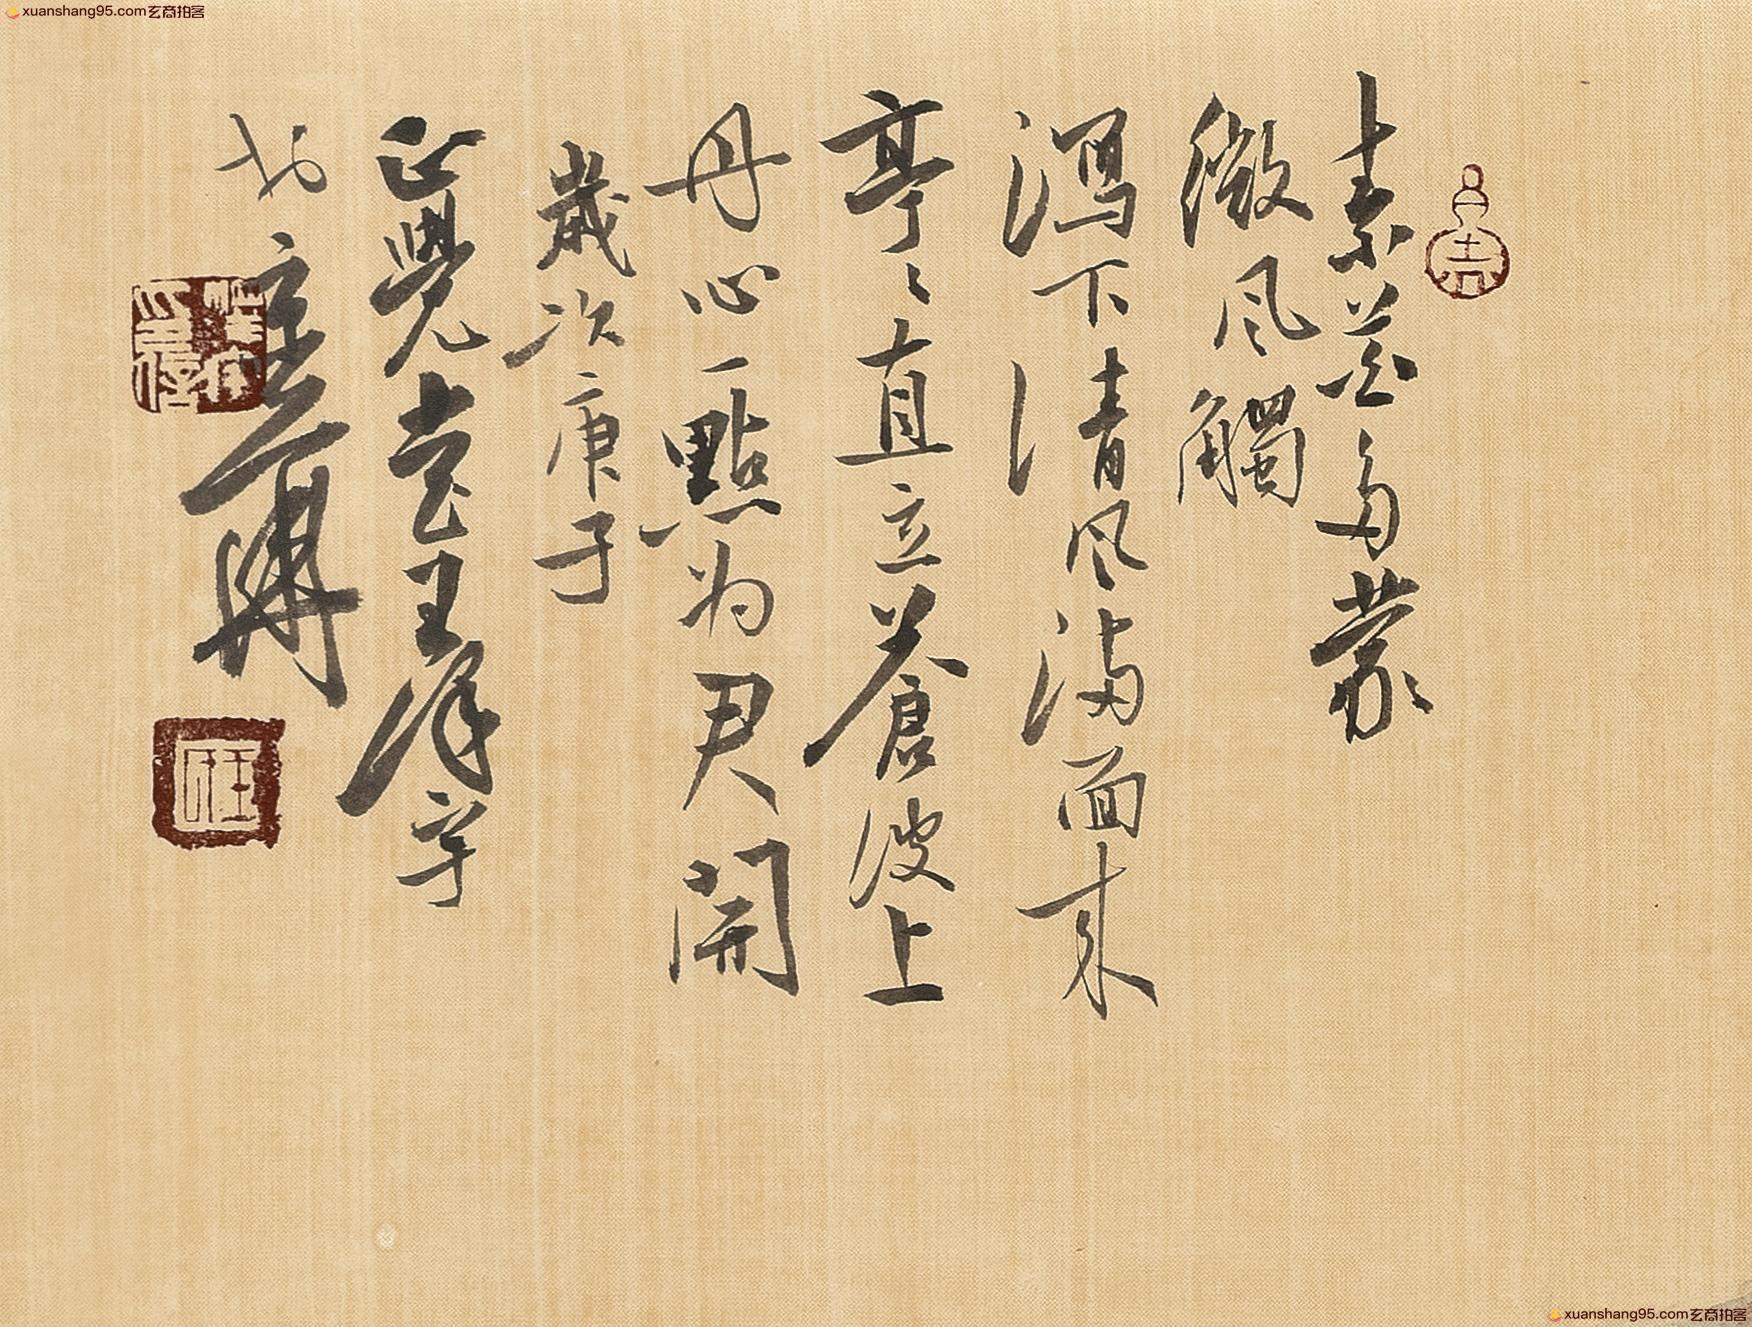 xuanshang95.com玄商拍客
素花多蒙
微風觸
瀉下清风满面来
亭亭直立蒼波上
丹心一點为君開
歲次庚子
正覺堂王
於
xuanshang95.com玄商拍客